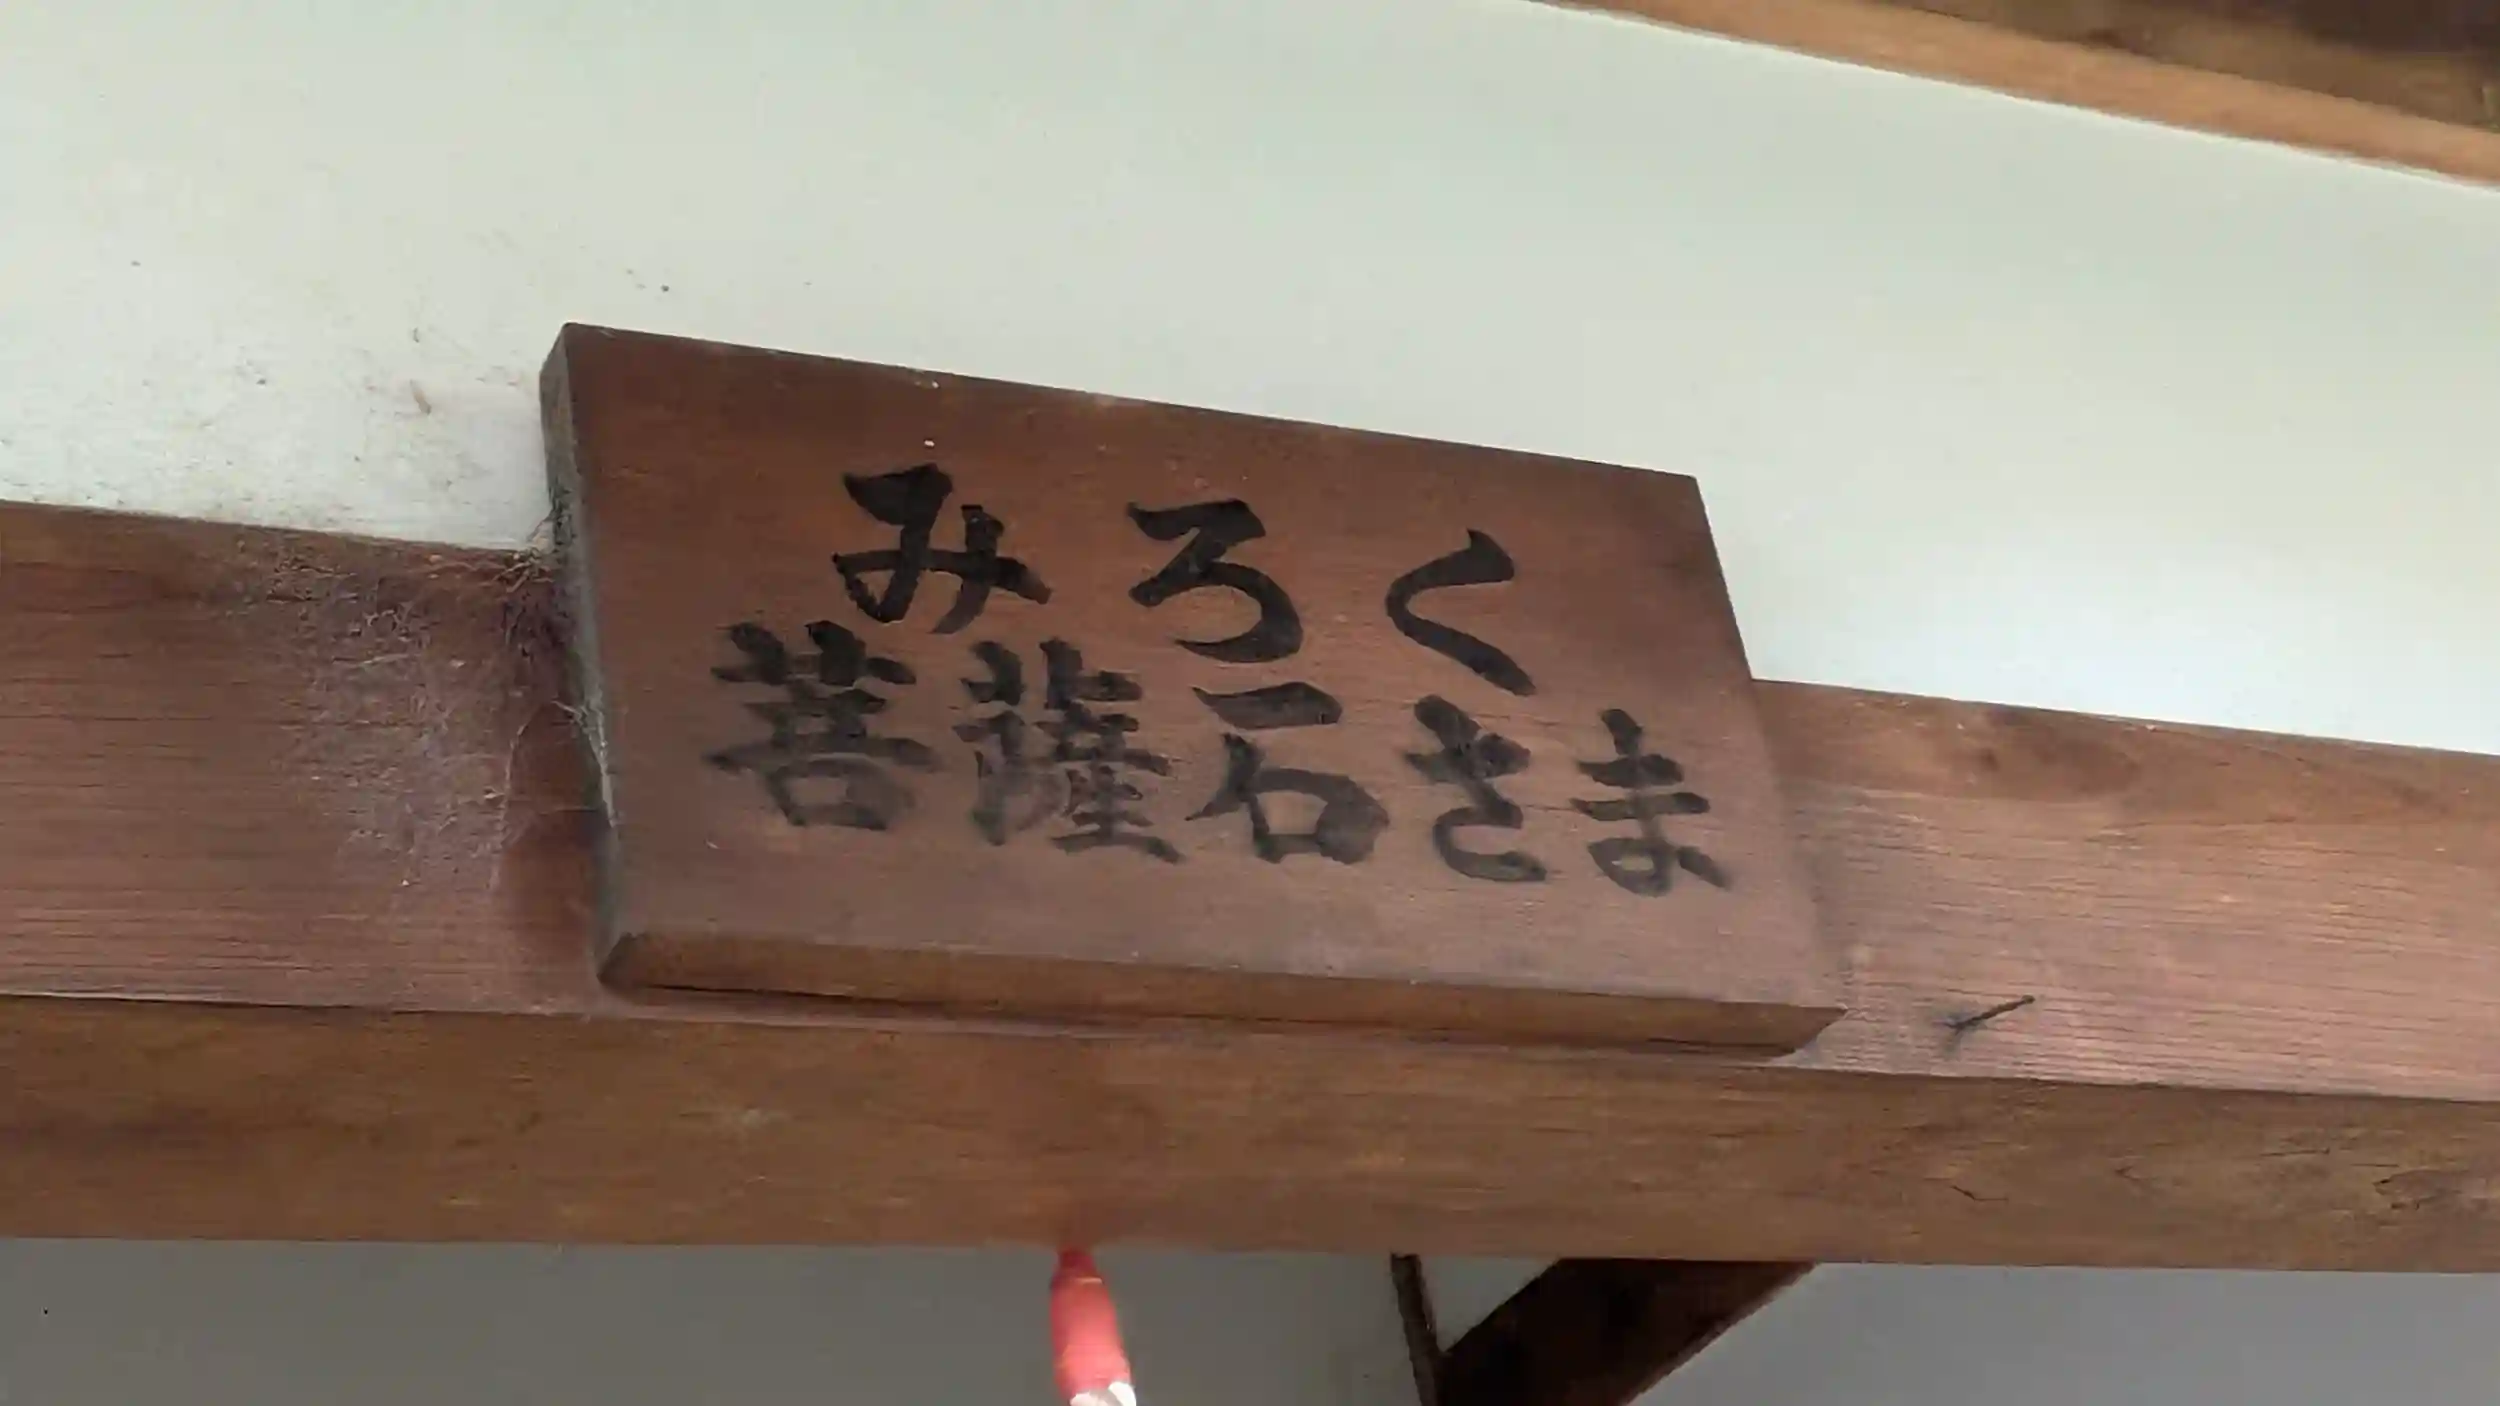 みろく
菩薩石さま